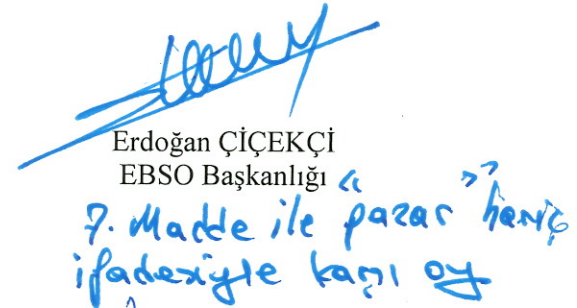 Erdoğan ÇİÇEKÇİ
EBSO Başkanlığı
7. Madde ile "pazar" hariç
ifadesiyle karşı oy